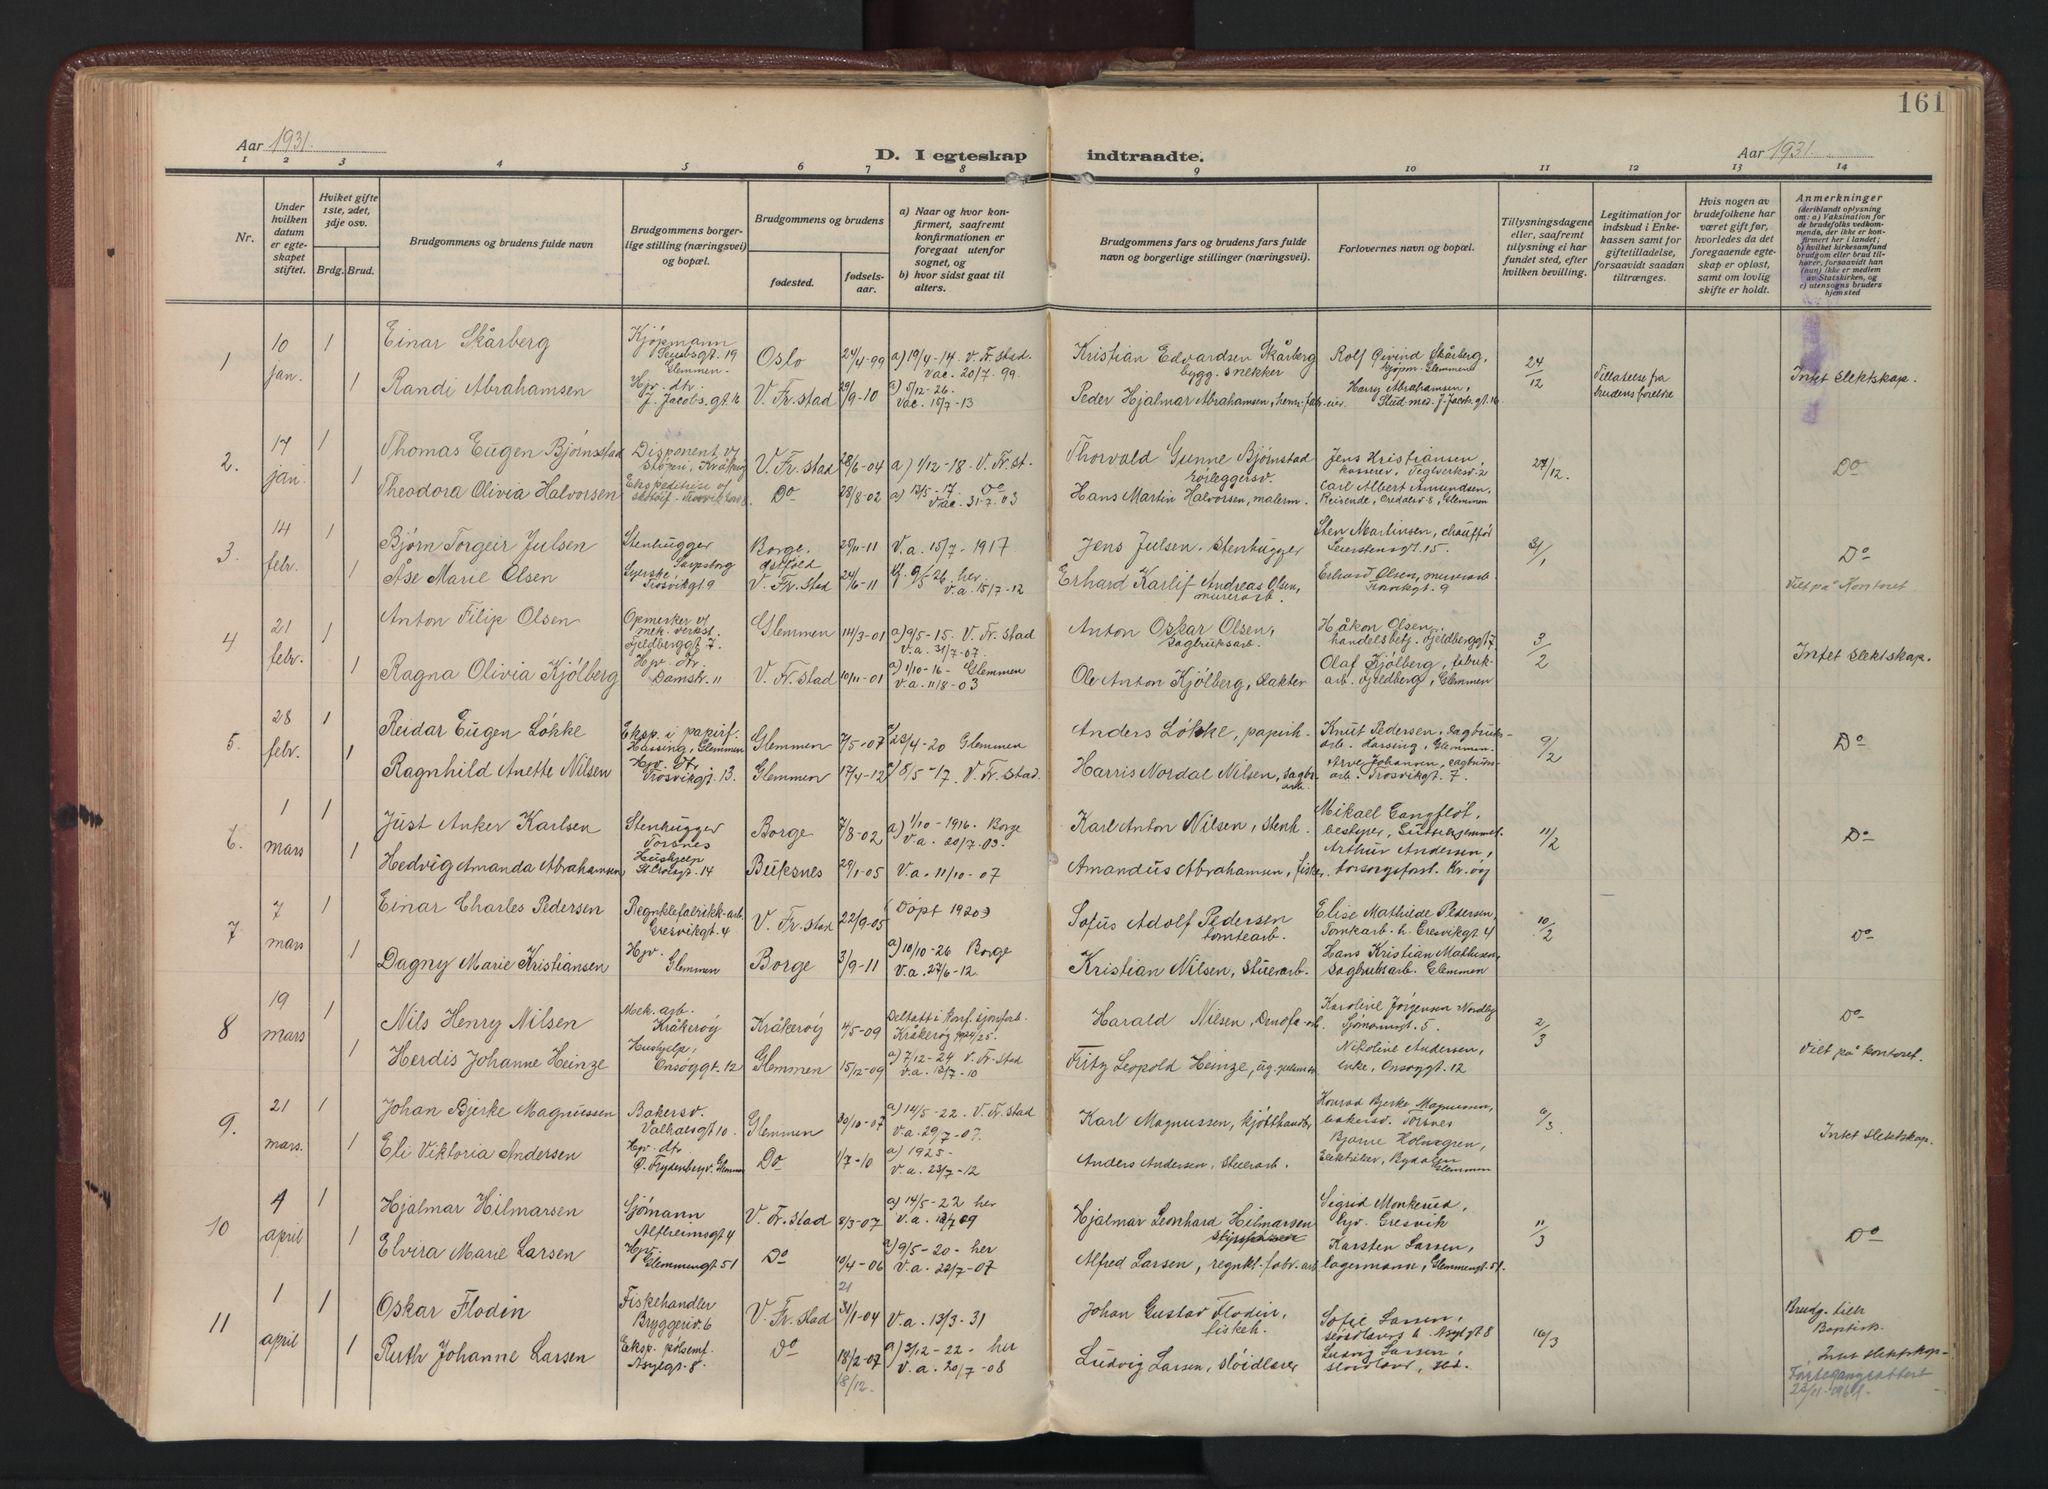 161
Aar 1931.
D. I egteskap indtraadte.
Aar 1931.
1 2 3 4 5 6 7 8 9 10 11 12 13 14
Nr.
Under hvilken datum er egteskapet stiftet.
Hvilket gifte 1ste, 2det, 3dje osv.
Brdg. Brud.
Brudgommens og brudens fulde navn
Brudgommens borgerlige stilling (næringsvei) og bopæl.
Brudgommens og brudens
fødested.
fødselsaar.
a) Naar og hvor konfirmert, saafremt konfirmationen er foregaat utenfor sognet, og
b) hvor sidst gaat til alters.
Brudgommens fars og brudens fars fulde navn og borgerlige stillinger (næringsvei).
Forlovernes navn og bopæl.
Tillysningsdagene eller, saafremt tillysning ei har fundet sted, efter hvilken bevilling.
Legitimation for indskud i Enkekassen samt for giftetilladelse, forsaavidt saadan tiltrænges.
Hvis nogen av brudefolkene har været gift før, hvorledes da det foregaaende egteskap er opløst, samt om lovlig skifte er holdt.
Anmerkninger
(deriblandt oplysning om: a) Vaksination for de brudefolks vedkommende, der ikke er konfirmert her i landet; b) hvilket kirkesamfund brudgom eller brud tilhører, forsaavidt han (hun) ikke er medlem av Statskirken, og c) utensogns bruders hjemsted
1 10 jan. 1 Einar Skårberg Kjøpmann Glemmen Oslo 24/4-99 a) 19/4-14. V. Fr.stad. Vac. 20/7.99. Kristian Edvardsen Skårberg bygg. snekker Rolf Øivind Skårberg, kjøpm. Glemmen 24/12 Tilladelse fra brudens forelre Intet slektskap.
1 Randi Abrahamsen Hjv. dtr. J. Jacobs.gt 16 V. Fr.stad 29/9-10 a) 5/12-26. Vac. 15/7-13 Peder Hjalmar Abrahamsen, Harry Abrahamsen, Stud. med. J. Jacobs.gt. 16
2. 17 jan. 1 Thomas Eugen Bjørnstad Disponent v/ Kråkerøy V. Fr.stad 28/6-04 a) 1/12-18. V. Fr.st. Thorvald Gunne Bjørnstad rørleggersv. Jens Kristiansen, kasserer, Teglverksv. 2 27/12. Do
1 Theodora Olivia Halvorsen Ekspeditrise v/ Do 28/8-02 a) 13/5-17. Do Vac. 31-7.03 Hans Martin Halvorsen, malerm. Carl Albert Amundsen, Reisende, Glemmen
3. 14 febr. 1 Bjørn Torgeir Julsen Stenhugger Sarpsborg Borge. Østfold 25/11-11 V.a. 15/7-1917 Jens Julsen. Stenhugger Sten Martinsen, chauffør Leiestensgt. 15. 31/1 Do
1 Åse Marie Olsen Syerske Trosvikgt. 9 V. Fr.stad 24/6-11 K. 9/5-26. her V.a. 15/7-12 Erhard Karlif Andreas Olsen, murerarb. Erhard Olsen, murerarb. Trosvikgt. 9 Viet på Kontoret
4 21 febr. 1 Anton Filip Olsen Opmerker v/ mek. verkst. Fjeldberggt. 7. Glemmen 14/3-01 a) 9/5-15. V. Fr.stad V.a. 31/7-07. Anton Oskar Olsen, Sagbruksarb. Håkon Olsen, handelsbetj. Fjeldberggt 7 3/2 Intet slektskap.
1 Ragna Olivia Kjølberg Hjv. dtr. Damstr. 11 V. Fr.stad 10/11-01 a) 1/10-16- Glemmen V.a. 11/8-03 Ole Anton Kjølberg, slakter Olaf Kjølberg, fabrikarb. Fjeldberg, Glemmen
5. 28 febr. 1 Reidar Eugen Løkke Eksp. i papirf. Hassing, Glemmen Glemmen 7/5-07 a) 23/4-20 Glemmen Anders Løkke, papirh. Knut Pedersen, sagbruksarb. Hassing, Glemmen. 9/2 Do
1 Ragnhild Anette Nilsen Hjv. dtr Trosvikgt. 13. Glemmen 17/4-12 a) 8/5-17. V. Fr.stad. Harris Nordal Nilsen, sagbr. arb. Arve Johansen, sagbruksarb. Trosvikgt. 7.
6. 1 mars 1 Just Anker Karlsen Stenhugger Torsnes Borge 7/8-02 a) 1/10-1916. Borge V.a. 20/7.03. Karl Anton Nilsen, stenh. Mikael Gangfløt, bestyrer, 11/2 Do
1 Hedvig Amanda Abrahamsen Hushjelp St. Croixgt. 14 Buksnes 29/1-05 V.a. 11/10-07 Amandus Abrahamsen, fisker. Arthur Andersen, forsorgsforst. Kr.øy
7 7 mars 1 Einar Charles Pedersen Regnklefabrikk-arb. Cresvikgt. 4 V. Fr.stad 22/9-05 Døpt 1920 Sofus Adolf Pedersen tomtearb. Elise Mathilde Pedersen, Tomkarb. h. Cresvikgt 4 10/2 Do
1 Dagny Marie Kristiansen Hjv. Glemmen Borge 3/9-11 a) 10/10-26 Borge V.a. 27/6-12. Kristian Nilsen, stuerarb. Hans Kristian Mathisen, Sagbruksarb. Glemmen
8 19 mars 1 Nils Henry Nilsen Mek. arb. Kråkerøy Kråkerøy 4/5-09 Deltatt i konf. Kråkerøy 1924/25. Harald Nilsen, Denofa-arb. Karoline Jørgensen Sjømannsgt. 5. 2/3 Do
1 Herdis Johanne Heinze Hushjelp, Onsøygt. 12 Glemmen 15/12-09 a) 7/12-24 V. Fr.stad V.a. 13/7-10 Fritz Leopold Heinze, Nikoline Andersen, enke, Onsøygt. 12 Viet på kontoret.
9. 21 mars. 1 Johan Bjerke Magnussen Bakersv. Valhalsgt 10. Glemmen 30/10-07 a) 14/5-22. V. Fr.stad V.a. 29/7-07. Karl Magnussen, kjøtthandler Konrad Bjerke Magnussen, bakersv. Torsnes 6/3 Intet slektskap.
1 Eli Viktoria Andersen Hjv. dtr. Do 1/7-10 a) 1925- V.a. 23/7-12 Anders Andersen, stuerarb. Bjarne Holmgren, Elektriker, Bydalen Glemmen
10 4 april 1 Hjalmar Hilmarsen Sjømann Alfheimsgt 4 V. Fr.stad 8/3-07 a) 14/5-22 her V.a. 13/7 09 Hjalmar Leonhard Hilmarsen Sigrid Monkerud, hjv. Cresvik 11/3 Do
1 Elvira Marie Larsen Hjv. Glemmengt 51 Do 10/4-06 a) 9/5-20- her V.a. 22/7-07 Alfred Larsen, regnkl. fabr.arb Karsten Larsen, lagermann, Glemmengt. 51.
11 1 april 1 Oskar Flodin Fiskehandler Bryggeriv. 6 V. Fr.stad 21 31/1-04 V.a. 13/3-31 Johan Gustav Flodin, fiskeh. Sofie Larsen, sløidlærers h. Asylgt 8 16/3 Brudg. tilh Baptists.
1 Ruth Johanne Larsen Eksp. pølsemf. Asylgt. 8. Do 18/2-07 18/12. a) 3/12-22- her V.a. 20/7-08 Ludvig Larsen, sløidlærer Ludvig Larsen, sløidlærer, Intet slektskap- 23/11-1961.